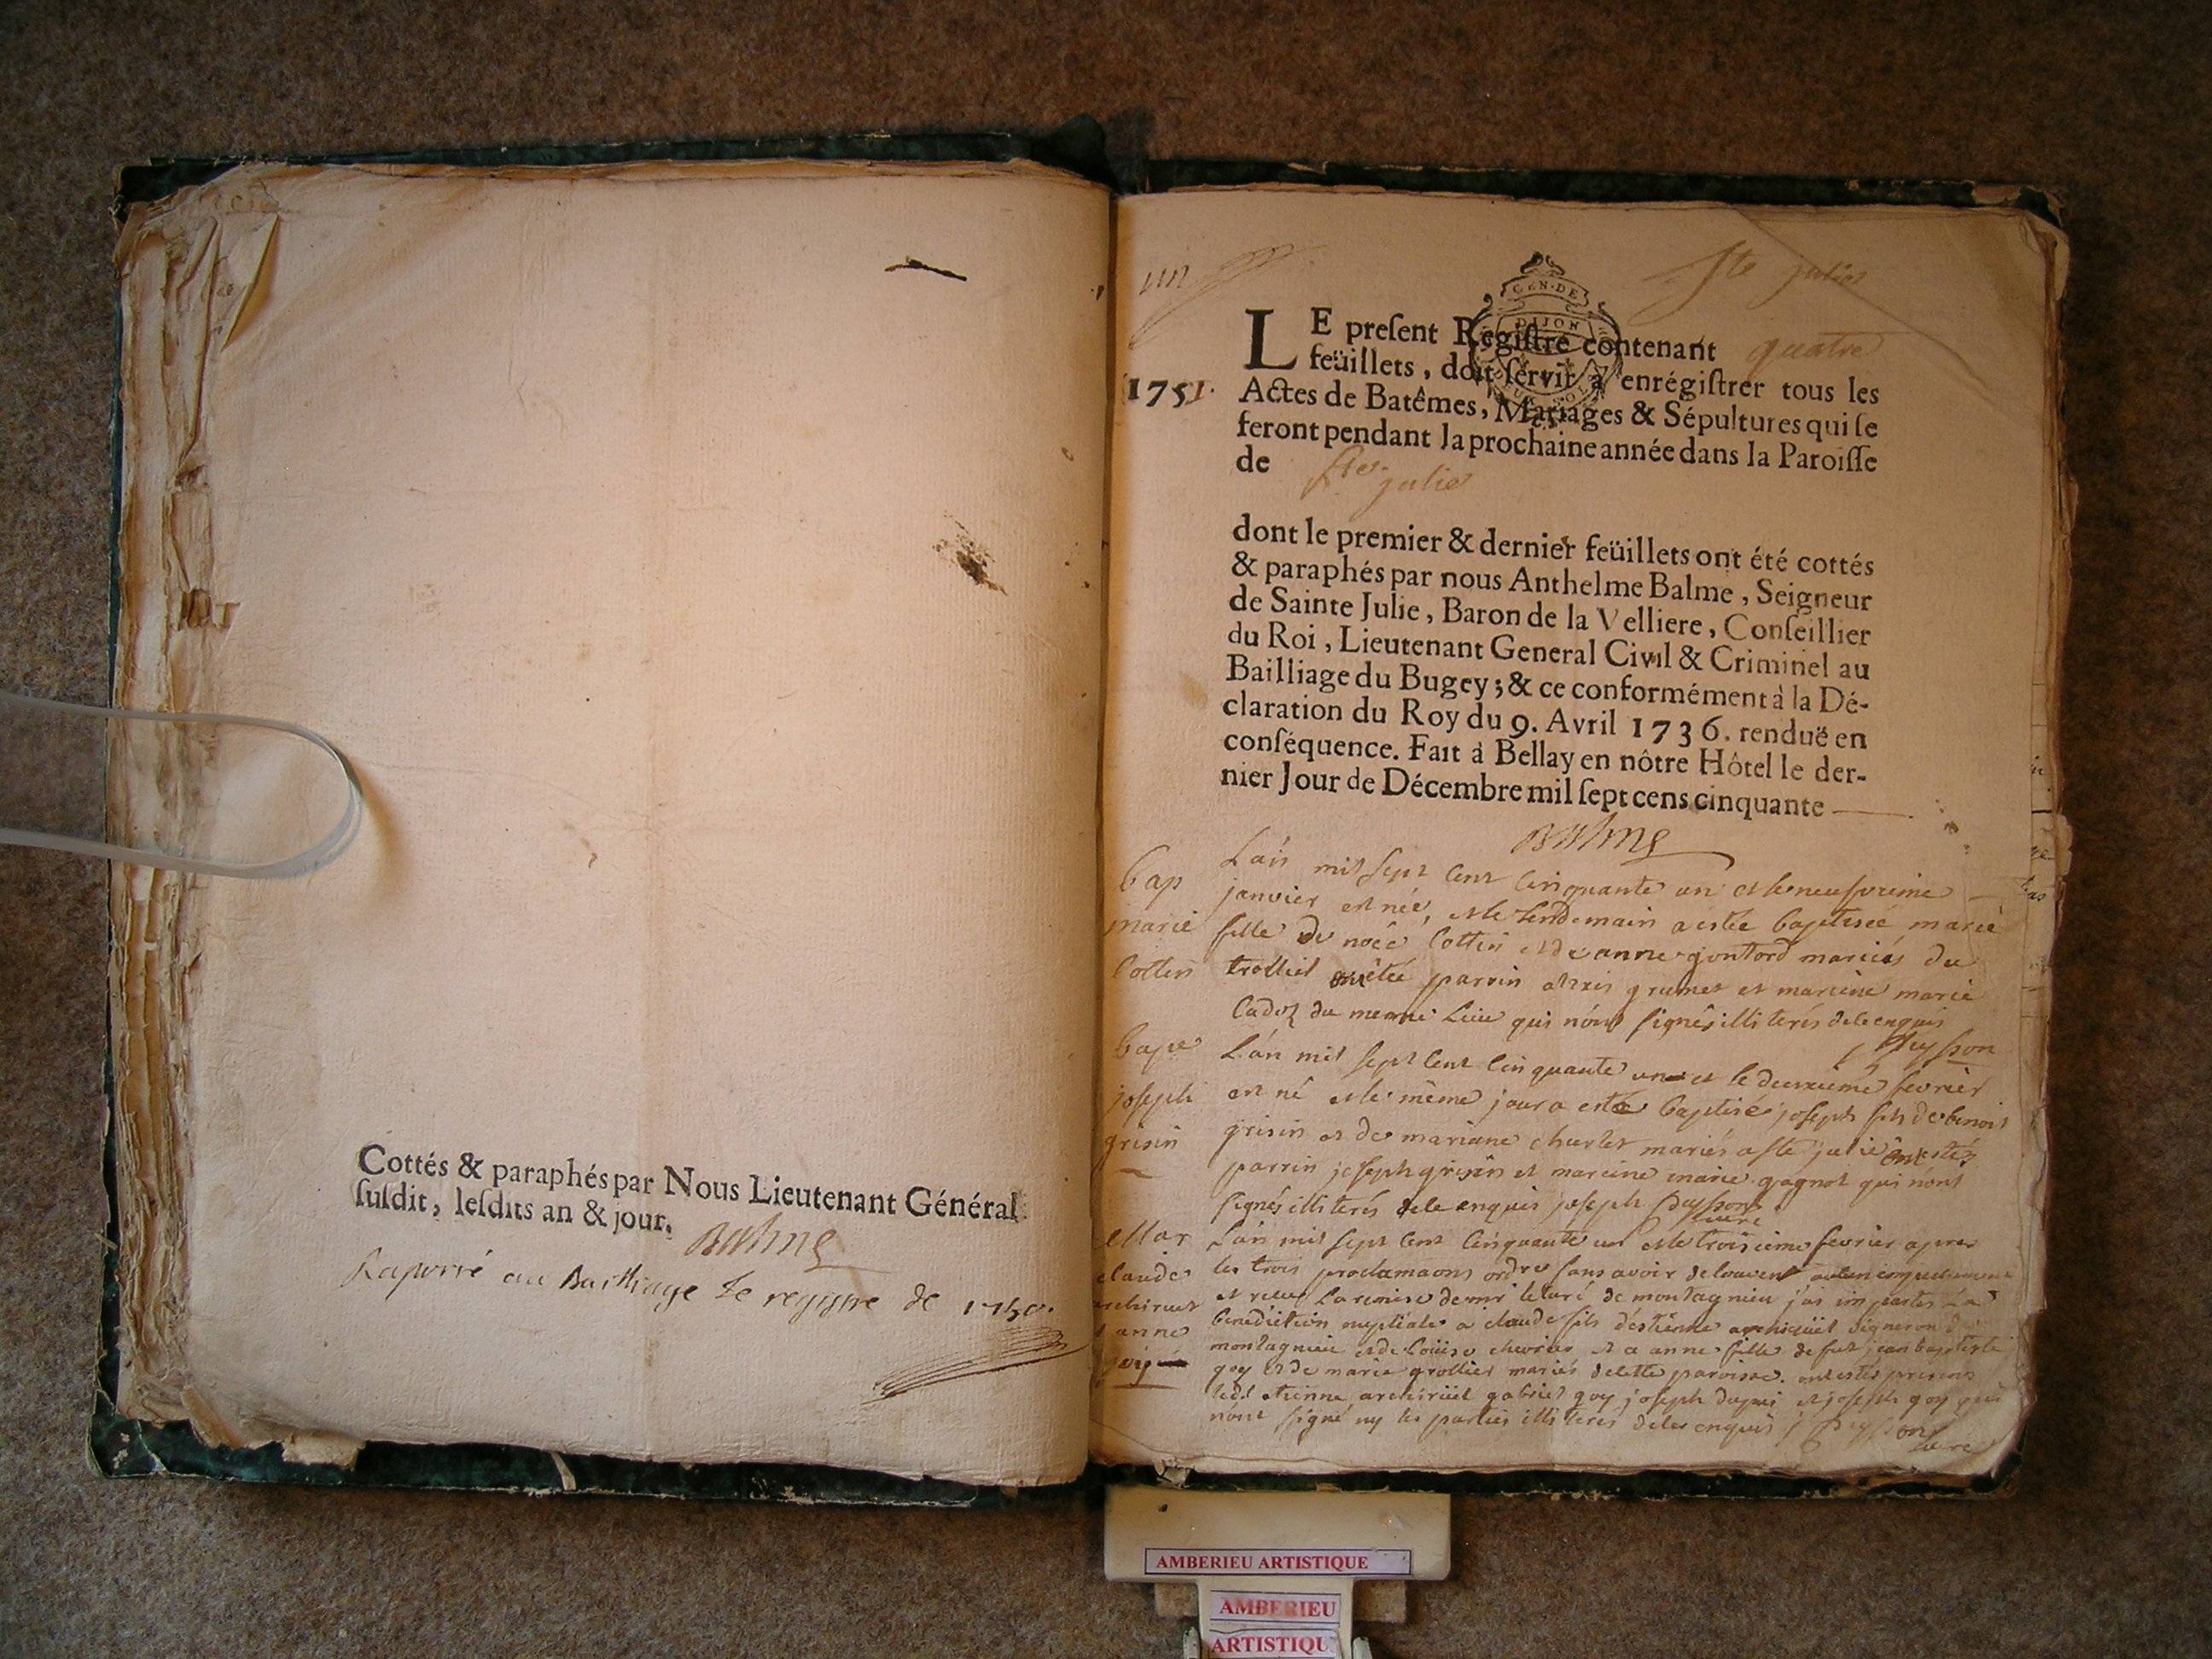 Cottés & paraphés par Nous Lieutenant Général
ſuſdit, leſdits an & jour.
Balme
Raporté au Bailliage le registre de 1750.
Ste julie
GEN·DE
DIJON
LE preſent Regiſtre contenant quatre
feüillets, doit ſervir à enrégiſtrer tous les
1751.
Actes de Batêmes, Mariages & Sépultures qui ſe
feront pendant la prochaine année dans la Paroiſſe
de Ste julie
dont le premier & dernier feüillets ont été cottés
& paraphés par nous Anthelme Balme, Seigneur
de Sainte Julie, Baron de la Velliere, Conſeillier
du Roi, Lieutenant General Civil & Criminel au
Bailliage du Bugey; & ce conformément à la Dé-
claration du Roy du 9. Avril 1736. renduë en
conſéquence. Fait à Bellay en nôtre Hôtel le der-
nier Jour de Décembre mil ſept cens cinquante
Balme
bap
marie
Cottin
L'an mil sept cent cinquante un et le neufvieme
janvier est née, et le lendemain a estée baptisée marie
fille de noël Cottin et de anne gontard mariés du
trolliet ont étée parrin grumet et marrine marie
du meme lieu qui n'ont signés illiterés de ce enquis
bapt
joseph
grisin
L'an mil sept cent cinquante un et le deuxieme fevrier
est né et le même jour a esté baptisé joseph fils de benoit
grisin et de mariane charlet mariés a ste julie ont estés
parrin joseph grisin et marrine marie gagnot qui n'ont
signés illiterés de ce enquis joseph
curé
Mar
claude
archiruet
anne
goy
L'an mil sept cent cinquante un et le troisieme fevrier apres
les trois proclamaons ordres sans avoir decouvert aucun empechement
et receu la remise de mr le curé de montagnieu j'ai impartis la
benediction nuptiale a claude fils d'estienne vigneron
montagnieu et de Loüise chevrier et a anne fille de fut jean baptiste
goy et de marie grollier mariés de cette paroisse. ont estés presens
ledt etienne gabriel goy joseph dupui et joseph goy qui
n'ont signé ny les parties illiterés de ce enquis
curé
AMBERIEU ARTISTIQUE
AMBERIEU
ARTISTIQU